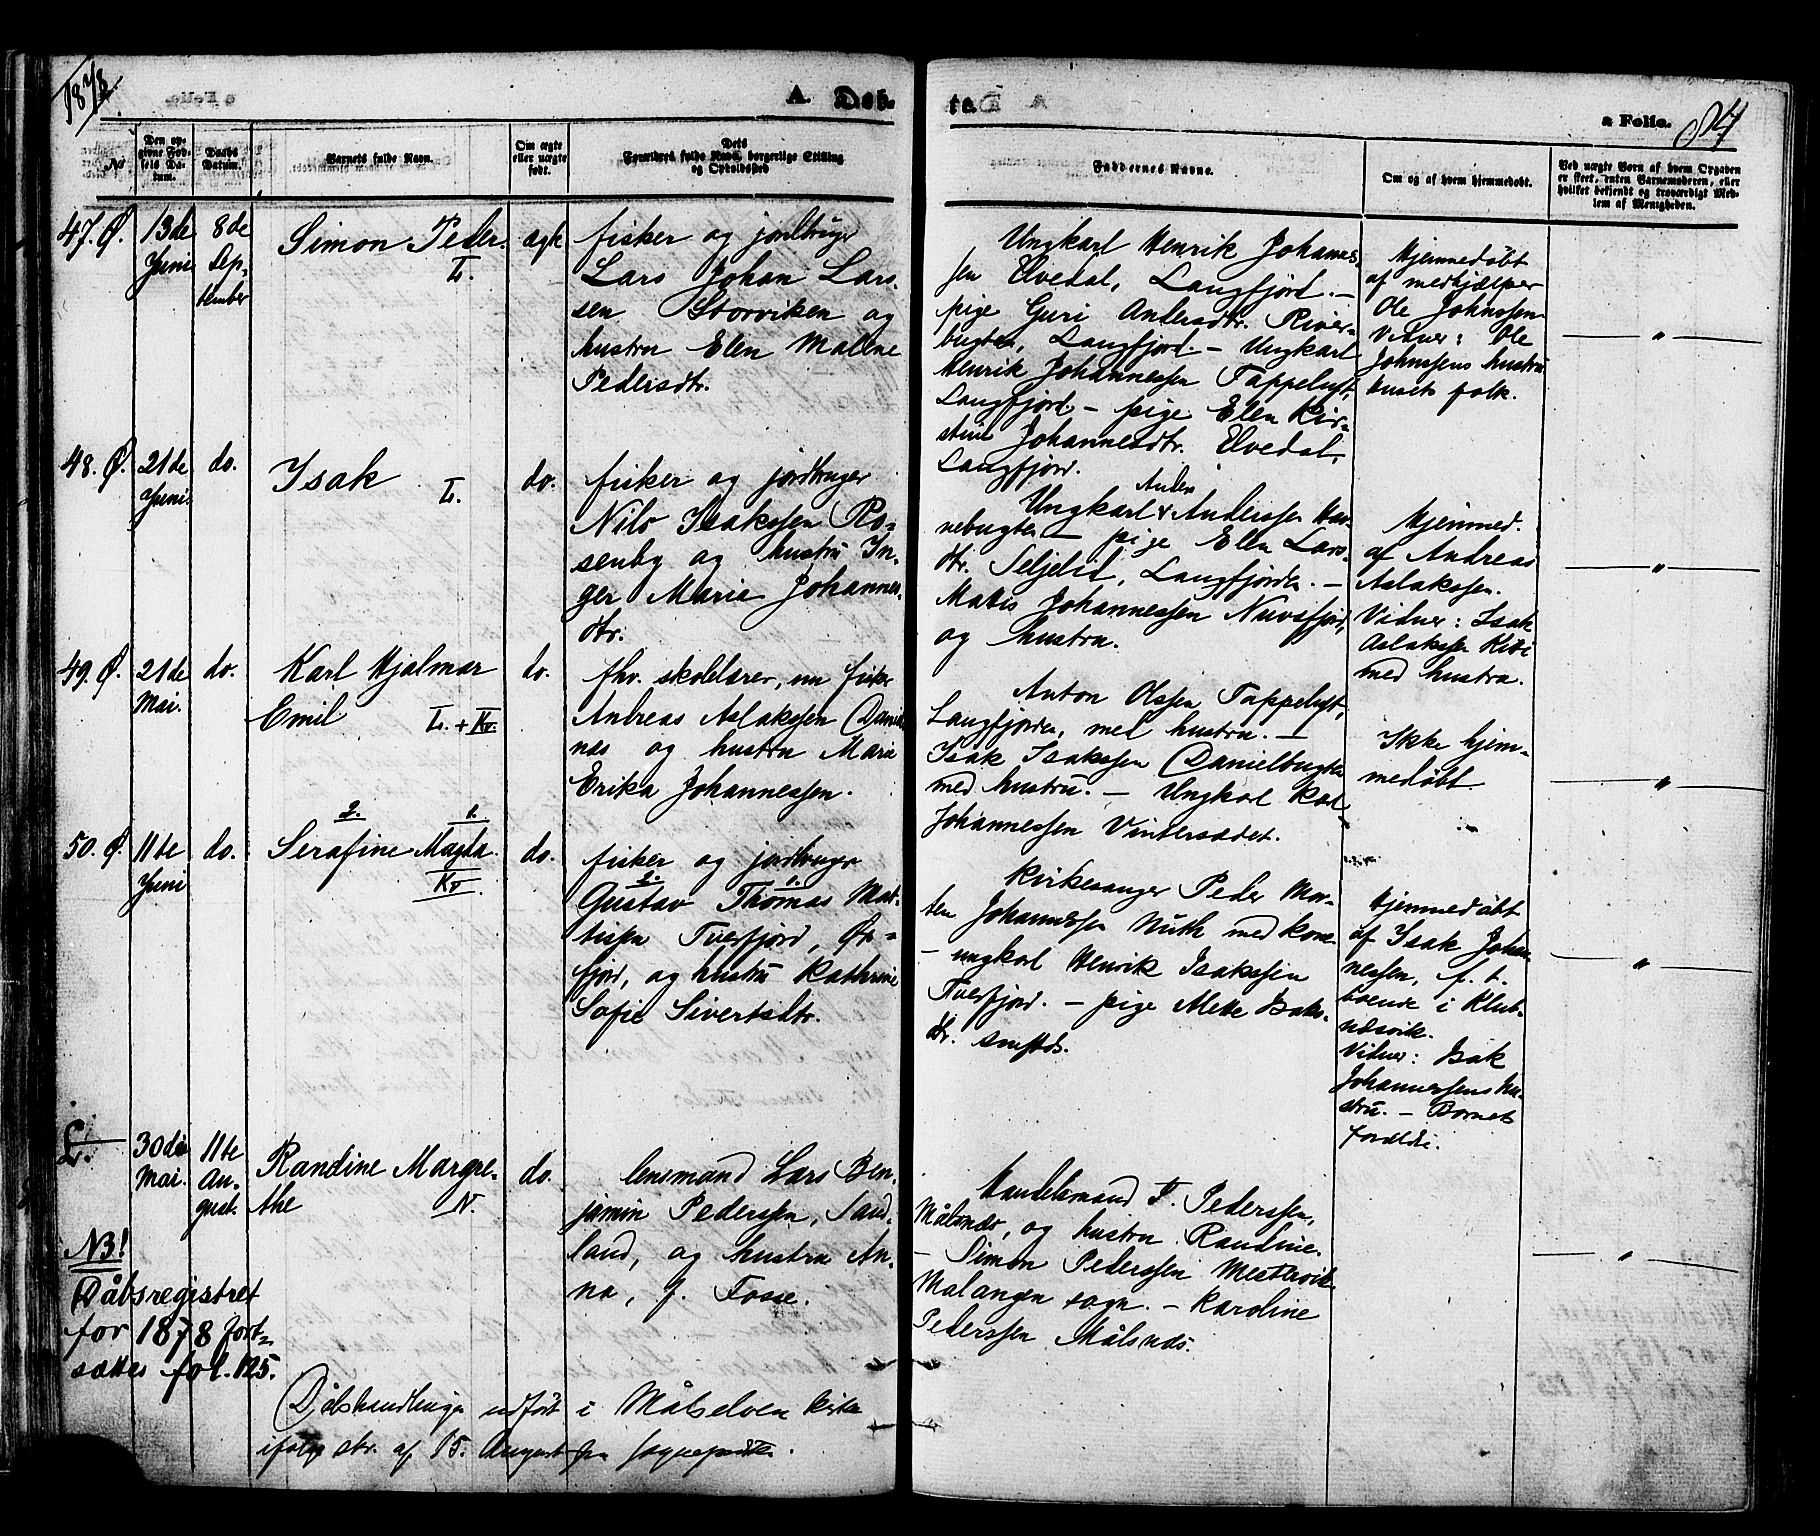 1878
A. Døb-
te.
a Folio. 84
No
Den op-
givne Fød-
sels Da-
tum.
Daabs
Datum.
Barnets fulde Navn.
Om ægte
eller uægte
født.
Dets
Forældres fulde Navn, borgerlige Stilling
og Opholdssted
Faddernes Navne.
Om og af hvem hjemmedøbt.
Ved uægte Børn af hvem Opgaven
er skeet, enten Barnemoderen, eller
hvilket bekjendt og troværdigt Med-
lem af Menigheden.
47. Ø.
13de
Juni
8de
Sep-
tember
Simon Peder.
L.
ægte
fisker og jordbruger
Lars Johan Lars-
sen Storviken og
hustru Elen Malene
Pedersdtr.
Ungkarl Henrik Johannes-
sen Elvedal, Langfjord. –
pige Guri Andersdtr. River-
bugten, Langfjord. – Ungkarl
Henrik Johannessen Tappeluft,
Langfjord – pige Elen Kir-
stine Johannesdtr. Elvedal,
Langfjord.
Hjemmedøbt
af medhjælper
Ole Johnssen
Vidner: Ole
Johnssens hustru
huset folk.
"
48. Ø.
21de
Juni
do.
Isak
L.
do.
fisker og jordbruger
Nils Isakssen Ro-
senby og hustru In-
ger Marie Johannes-
dtr.
Anders
Ungkarl Anderssen Hav-
nebugten – pige Elen Lars-
dtr. Seljelid, Langfjorden. –
Matis Johannessen Nuvsfjord,
og hustru.
Hjemmed.
af Andreas
Aslakssen.
Vidner: Isak
Aslakssen Kivi
med hustru.
"
49. Ø.
21de
Mai.
do.
Karl Hjalmar
Emil L. + Kv.
do.
fhv. skolelærer, nu fisker
Andreas Aslakssen Daniel-
næs og hustru Marie
Erika Johannessen.
Anton Olssen Tappeluft,
Langfjorden, med hustru. –
Isak Isakssen Danielbugten
med hustru. – Ungkarl Karl
Johannessen Vintersædet.
Ikke hjem-
medøbt
"
50. Ø.
11te
Juni
do.
2. 1.
Serafine Magda
Kv
do.
fisker og jordbruger
2. 1.
Gustav Thomas Mat-
tissen Tverfjord, Øx-
fjord, og hustru Kathrine
Sofie Sivertsdtr.
Kirkesanger Peder Mor-
ten Johannessen Nuth med kone
– ungkarl Henrik Isakssen
Tverfjord. – pige Mette Isaks-
dtr. smstds.
Hjemmedøbt
af Isak Johan-
nessen, f. t.
boende i Klub-
næsvik.
Vidner: Isak
Johannessens hu-
stru. – Barnets
forældre.
"
L.
30de
Mai.
11te
Au-
gust.
Randine Margre-
the N.
do.
lensmand Lars Ben-
jamin Pederssen, Sand-
land, og hustru An-
na, f. Fosse.
Handelsmand P. Pederssen,
Målsnæs, og hustru Randine.
– Simon Pederssen Mestervik
Malangen sogn. – Karoline
Pederssen Målsnæs.
"
NB!
Dåbsregistret
for 1878 fort-
sættes fol. 125.
Dåbshandlingen udført i Målselven kirke
ifølge skr. af 15. August fra sognepresten.